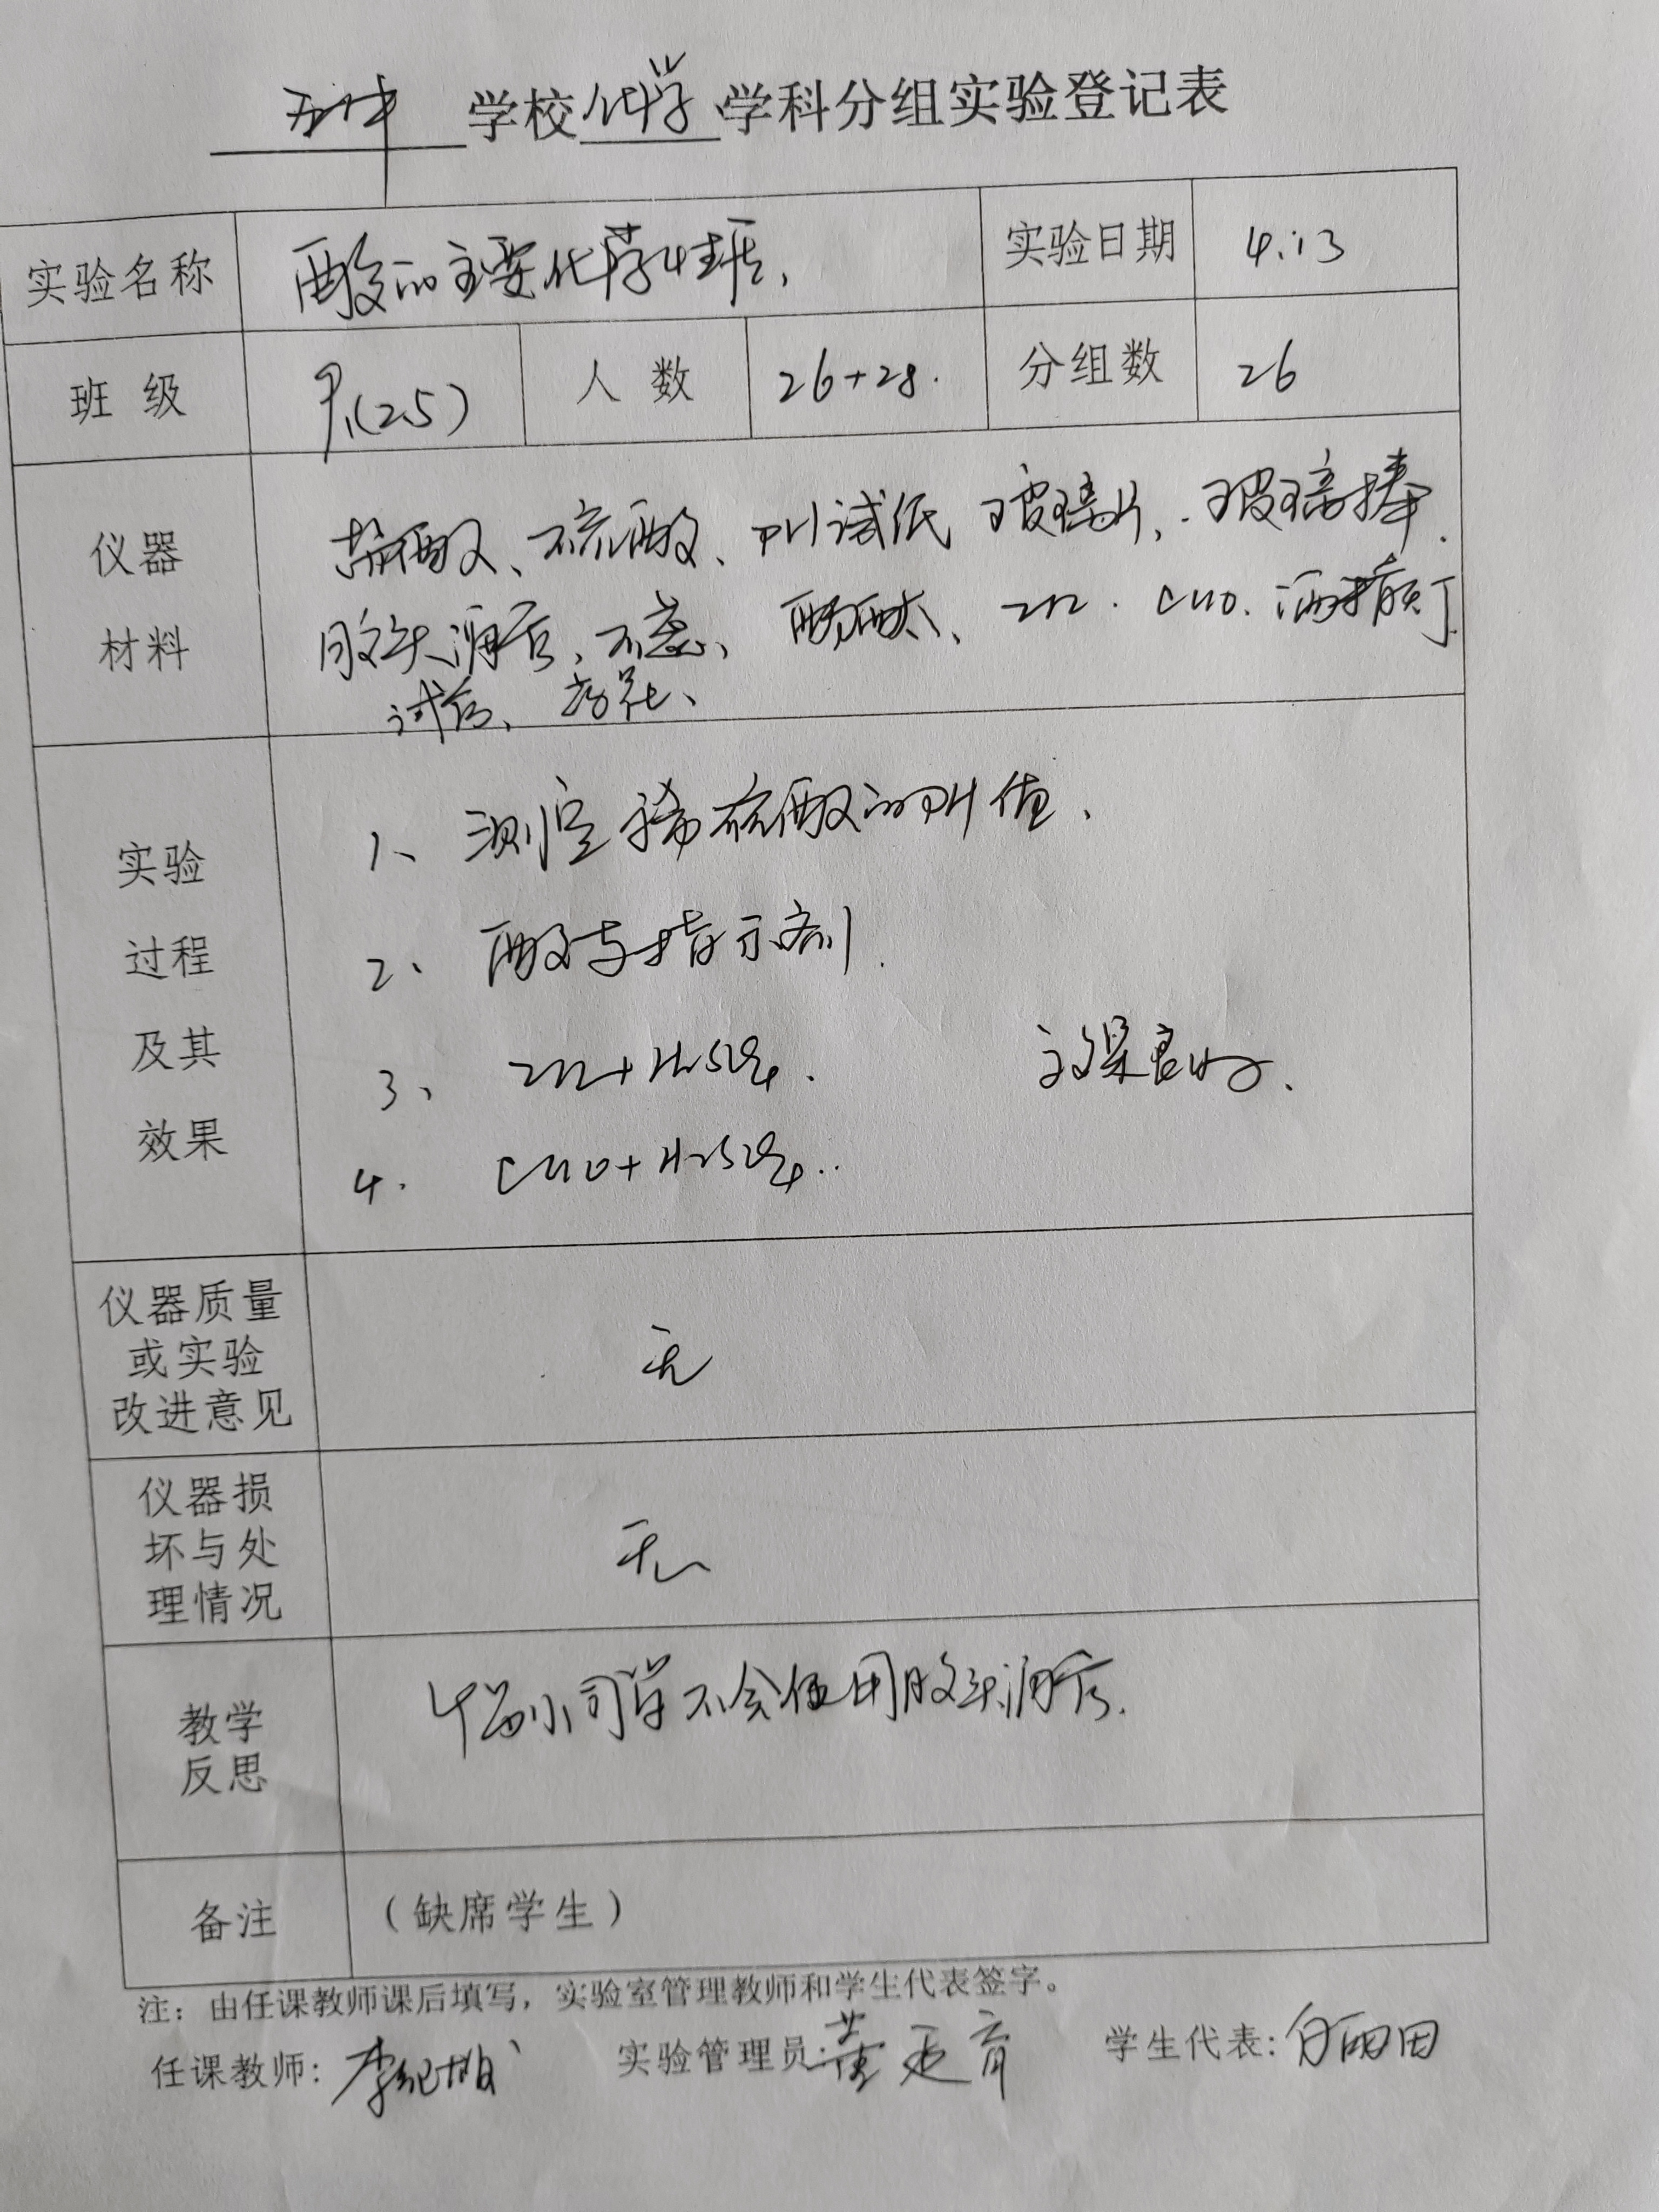 学校化学学科分组实验登记表
实验名称 酸的主要化学性质、 实验日期 4.13
班 级 九(2.5) 人 数 26+28. 分组数 26
仪器
材料
盐酸、硫酸、PH试纸 玻璃片、玻璃棒
胶头滴管、石蕊、酚酞、Zn. CuO. 酒精灯
试管、药匙、
实验
过程
及其
效果
1、测定稀硫酸的PH值、
2、酸与指示剂.
3、Zn+H2SO4. 效果良好、
4. CuO+H2SO4..
仪器质量
或实验
改进意见
无
仪器损
坏与处
理情况
无
教学
反思
同学不会使用胶头滴管.
备注 (缺席学生)
注：由任课教师课后填写，实验室管理教师和学生代表签字。
任课教师: 实验管理员: 学生代表: